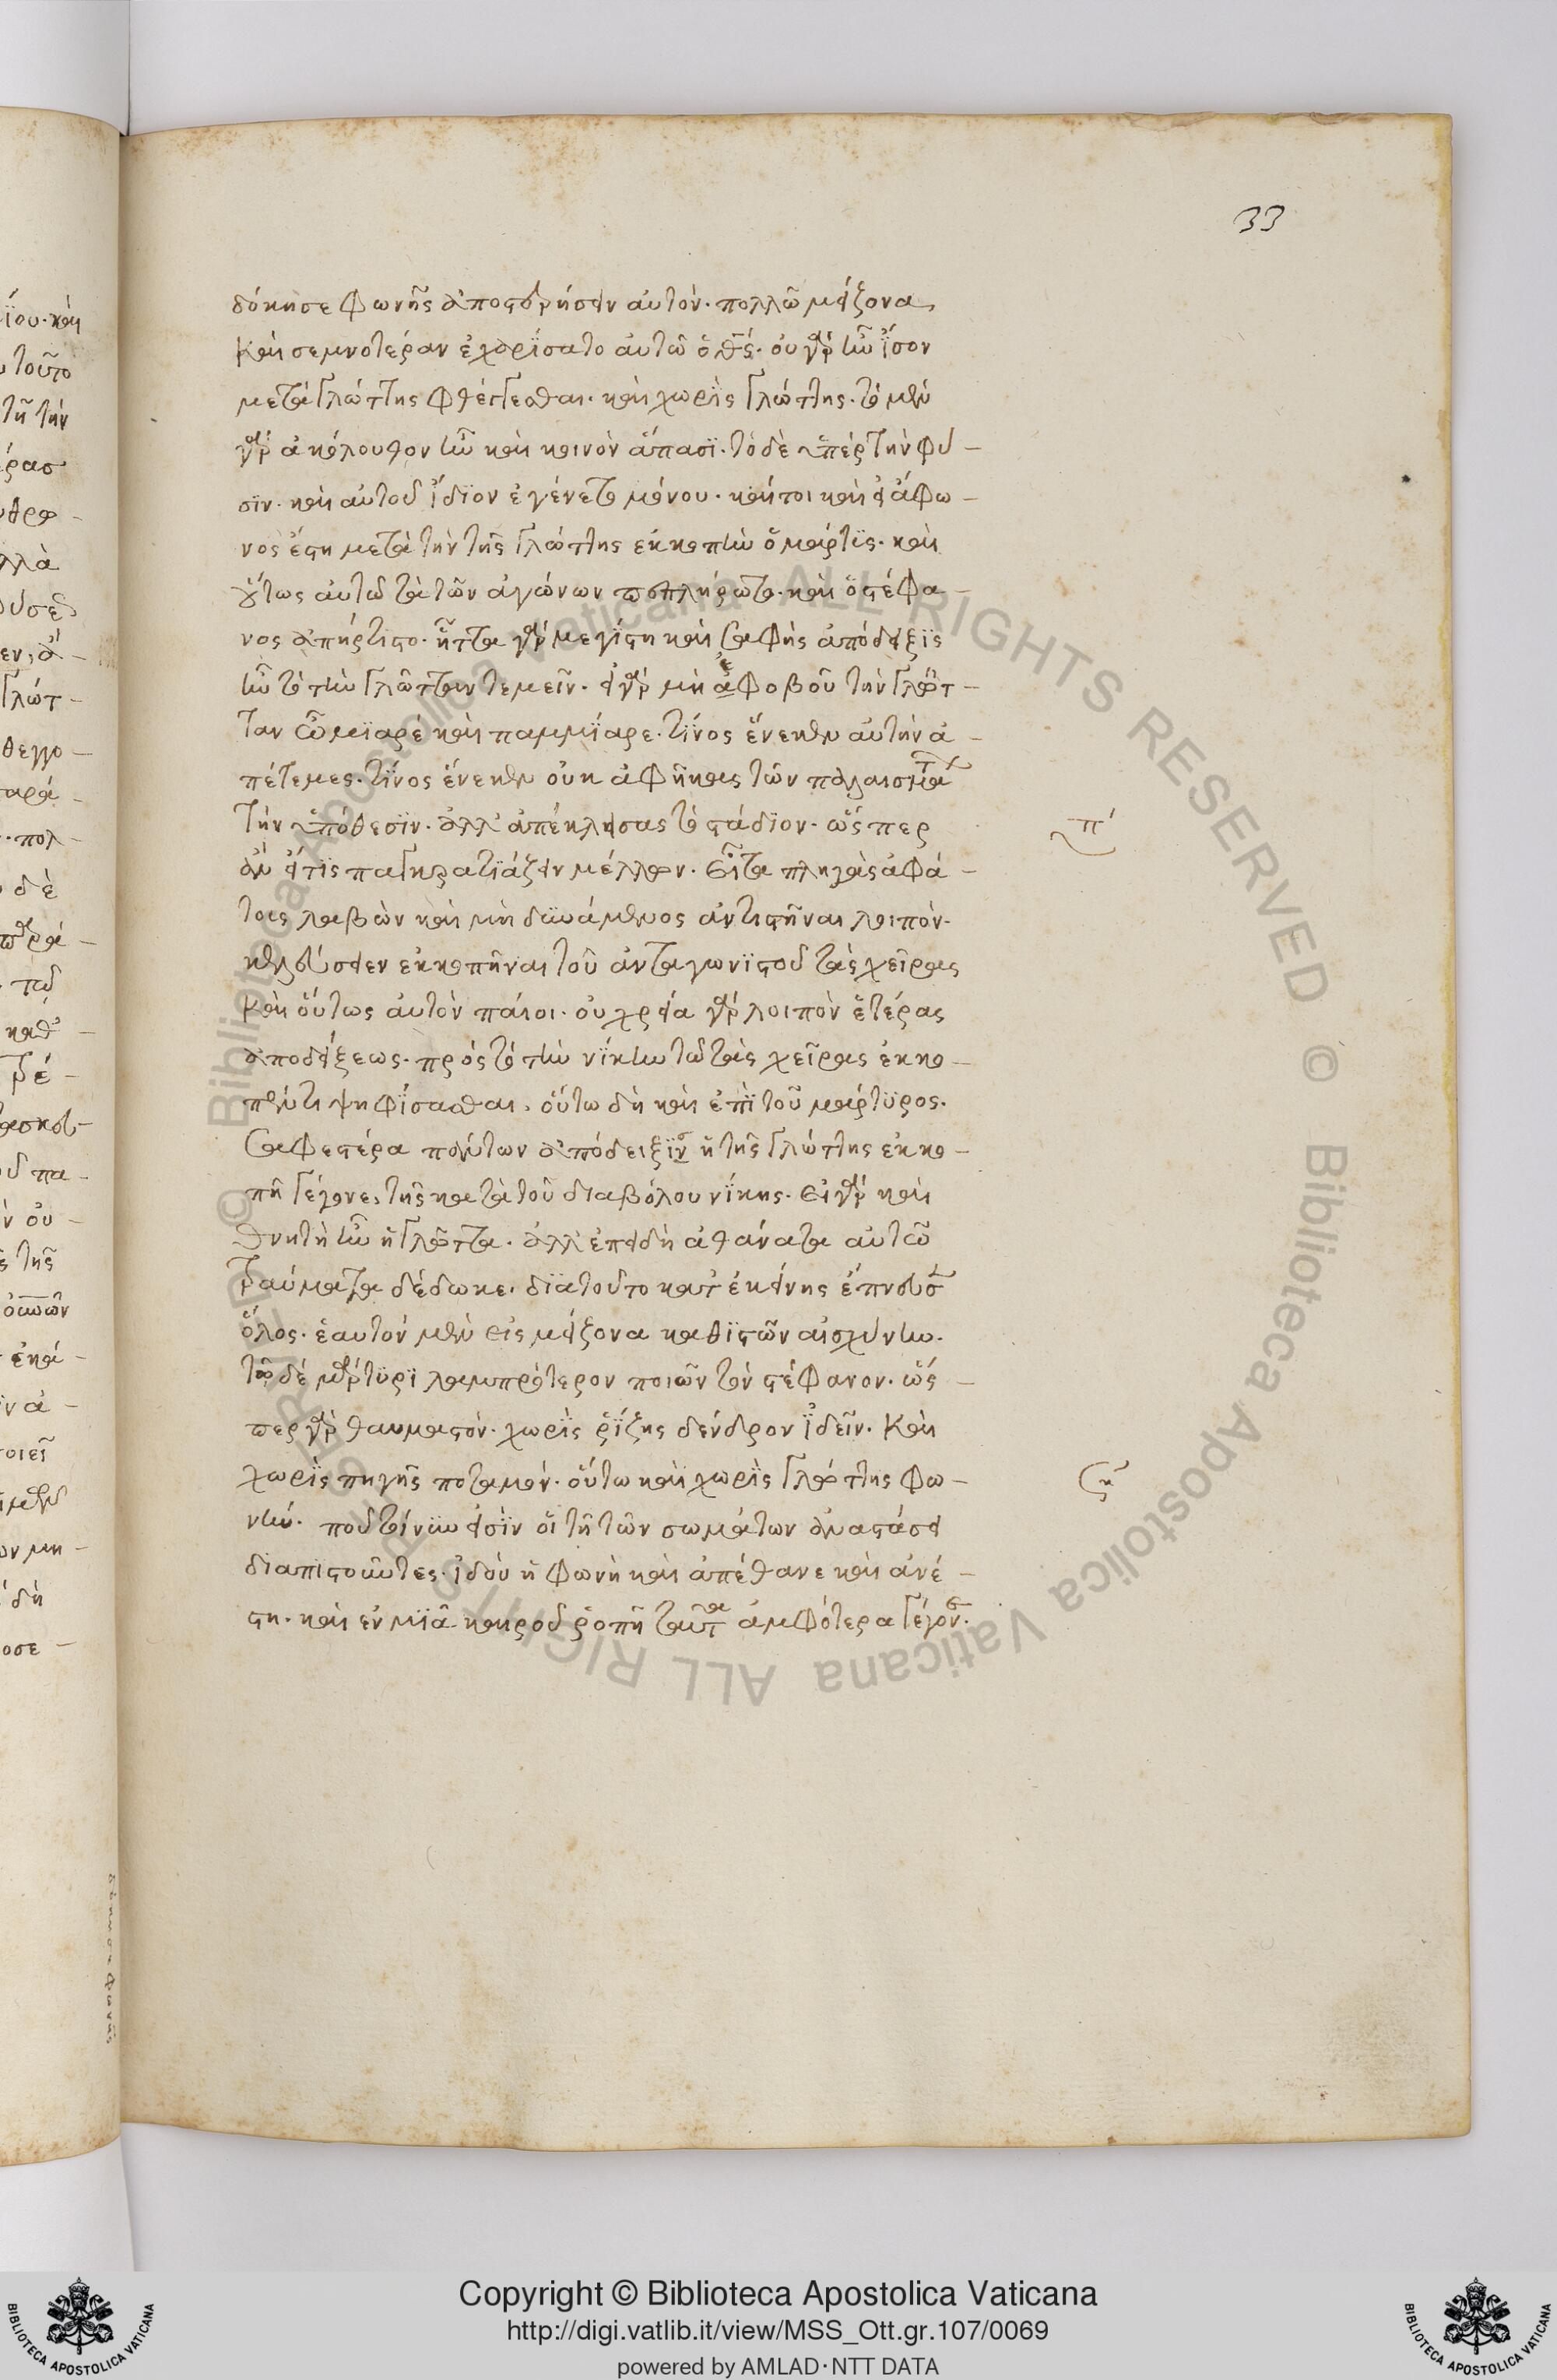 33
δόκησε φωνῆς ἀποστερήσειν αὐτόν· πολλῶ μείζονα
καὶ σεμνοτέραν ἐχαρίσατο αὐτῶ ὁ θς· οὐ γὰρ ἦν ἴσον
μετὰ γλώττης φθέγγεσθαι· καὶ χωρὶς γλώττης· τὸ μὲν
γὰρ ἀκόλουθον ἦν καὶ κοινὸν ἅπασι· τὸ δὲ ὑπὲρ τὴν φύ-
σιν· καὶ αὐτοῦ ἴδιον ἐγένετο μόνου· καίτοι καὶ εἰ ἄφω-
νος ἔστη μετὰ τὴν τῆς γλώττης ἐκκοπὴν ὁ μάρτις· καὶ
οὕτως αὐτῶ τὰ τῶν ἀγώνων πεπλήρωτο· καὶ ὁ στέφα-
νος ἀπήρτιστο· ἧττα γὰρ μεγίστη καὶ σαφὴς ἀπόδειξις
ἦν τὸ τὴν γλῶτταν τεμεῖν· εἰ γὰρ μὴ ἐφοβοῦ τὴν γλῶτ-
ταν ὦ μιαρὲ καὶ παμμίαρε· τίνος ἕνεκεν αὐτὴν ἀ-
πέτεμες· τίνος ἕνεκεν οὐκ ἀφῆκας τῶν παλαισμάτων
τὴν ὑπόθεσιν· ἀλλ' ἀπέκλεισας τὸ στάδιον· ὥσπερ
ἂν εἴ τις παγκρατιάζειν μέλλων· εἶτα πληγὰς ἀφά-
τους λαβὼν καὶ μὴ δυνάμενος ἀντιστῆναι λοιπόν·
κελεύσειεν ἐκκοπῆναι τοῦ ἀνταγωνιστοῦ τὰς χεῖρας
καὶ οὕτως αὐτὸν παίοι· οὐ χρεία γὰρ λοιπὸν ἑτέρας
ἀποδείξεως· πρὸς τὸ τὴν νίκην τῶ τὰς χεῖρας ἐκκο-
πέντι ψηφίσασθαι· οὕτω δὴ καὶ ἐπὶ τοῦ μάρτυρος·
σαφεστέρα πάντων ἀπόδειξις ἡ τῆς γλώττης ἐκκο-
πὴ γέγονε, τῆς κατὰ τοῦ διαβόλου νίκης· εἰ γὰρ καὶ
θνητὴ ἦν ἡ γλῶττα· ἀλλ' ἐπειδὴ ἀθάνατα αὐτῶ
τραύματα δέδωκε· διὰ τοῦτο κατ' ἐκείνης ἔπνευσεν
ὅλος· ἑαυτὸν μὲν εἰς μείζονα καθιστῶν αἰσχύνην·
τῶ δὲ μάρτυρι λαμπρότερον ποιῶν τὸν στέφανον· ὥσ-
περ γὰρ θαυμαστὸν· χωρὶς ῥίζης δένδρον ἰδεῖν· καὶ
χωρὶς πηγῆς ποταμόν· οὕτω καὶ χωρὶς γλώττης φω-
νήν· ποῦ τοίνυν εἰσὶν οἱ τῆ τῶν σωμάτων ἀναστάσει
διαπιστοῦντες· ἰδοὺ ἡ φωνὴ καὶ ἀπέθανε καὶ ἀνέ-
στη· καὶ ἐν μιᾶ καιροῦ ῥοπῆ ταῦτα ἀμφότερα γέγονεν·
Copyright © Biblioteca Apostolica Vaticana
http://digi.vatlib.it/view/MSS_Ott.gr.107/0069
powered by AMLAD·NTT DATA